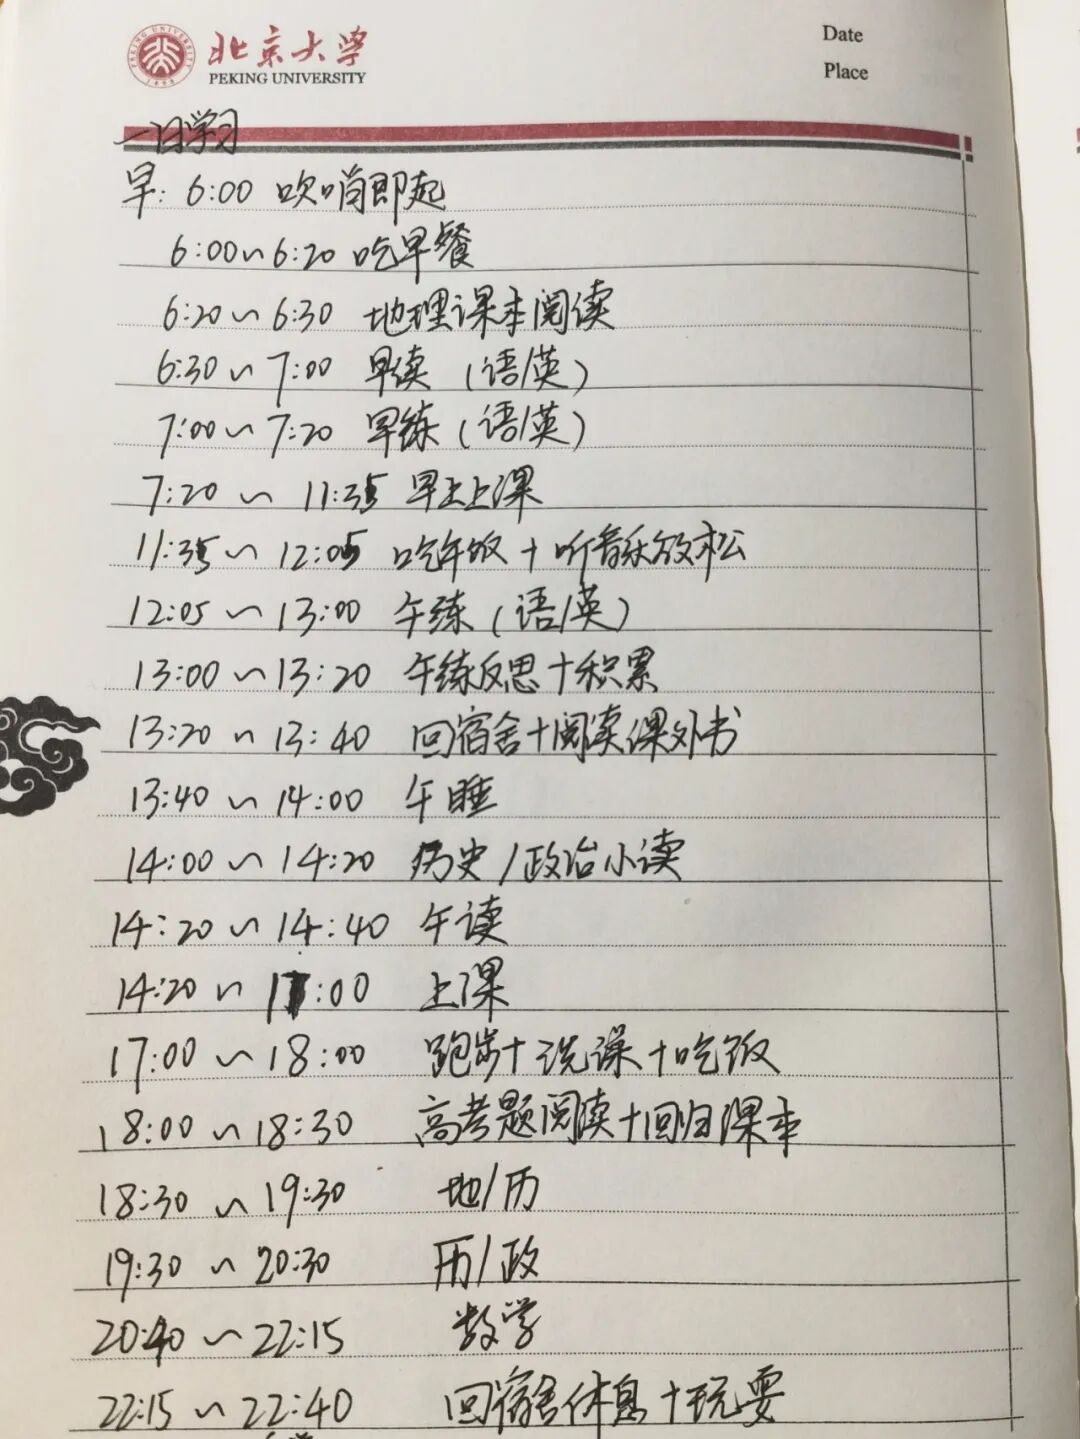 北京大学
PEKING UNIVERSITY
Date
Place
一日学习
早: 6:00 吹哨即起
6:00~6:20 吃早餐
6:20~6:30 地理课本阅读
6:30~7:00 早读(语/英)
7:00~7:20 早练(语/英)
7:20~11:35 早上上课
11:35~12:05 吃午饭+听音乐放松
12:05~13:00 午练(语/英)
13:00~13:20 午练反思+积累
13:20~13:40 回宿舍+阅读课外书
13:40~14:00 午睡
14:00~14:20 历史/政治小读
14:20~14:40 午读
14:20~17:00 上课
17:00~18:00 跑步+洗澡+吃饭
18:00~18:30 高考题阅读+回归课本
18:30~19:30 地/历
19:30~20:30 历/政
20:40~22:15 数学
22:15~22:40 回宿舍休息+玩耍